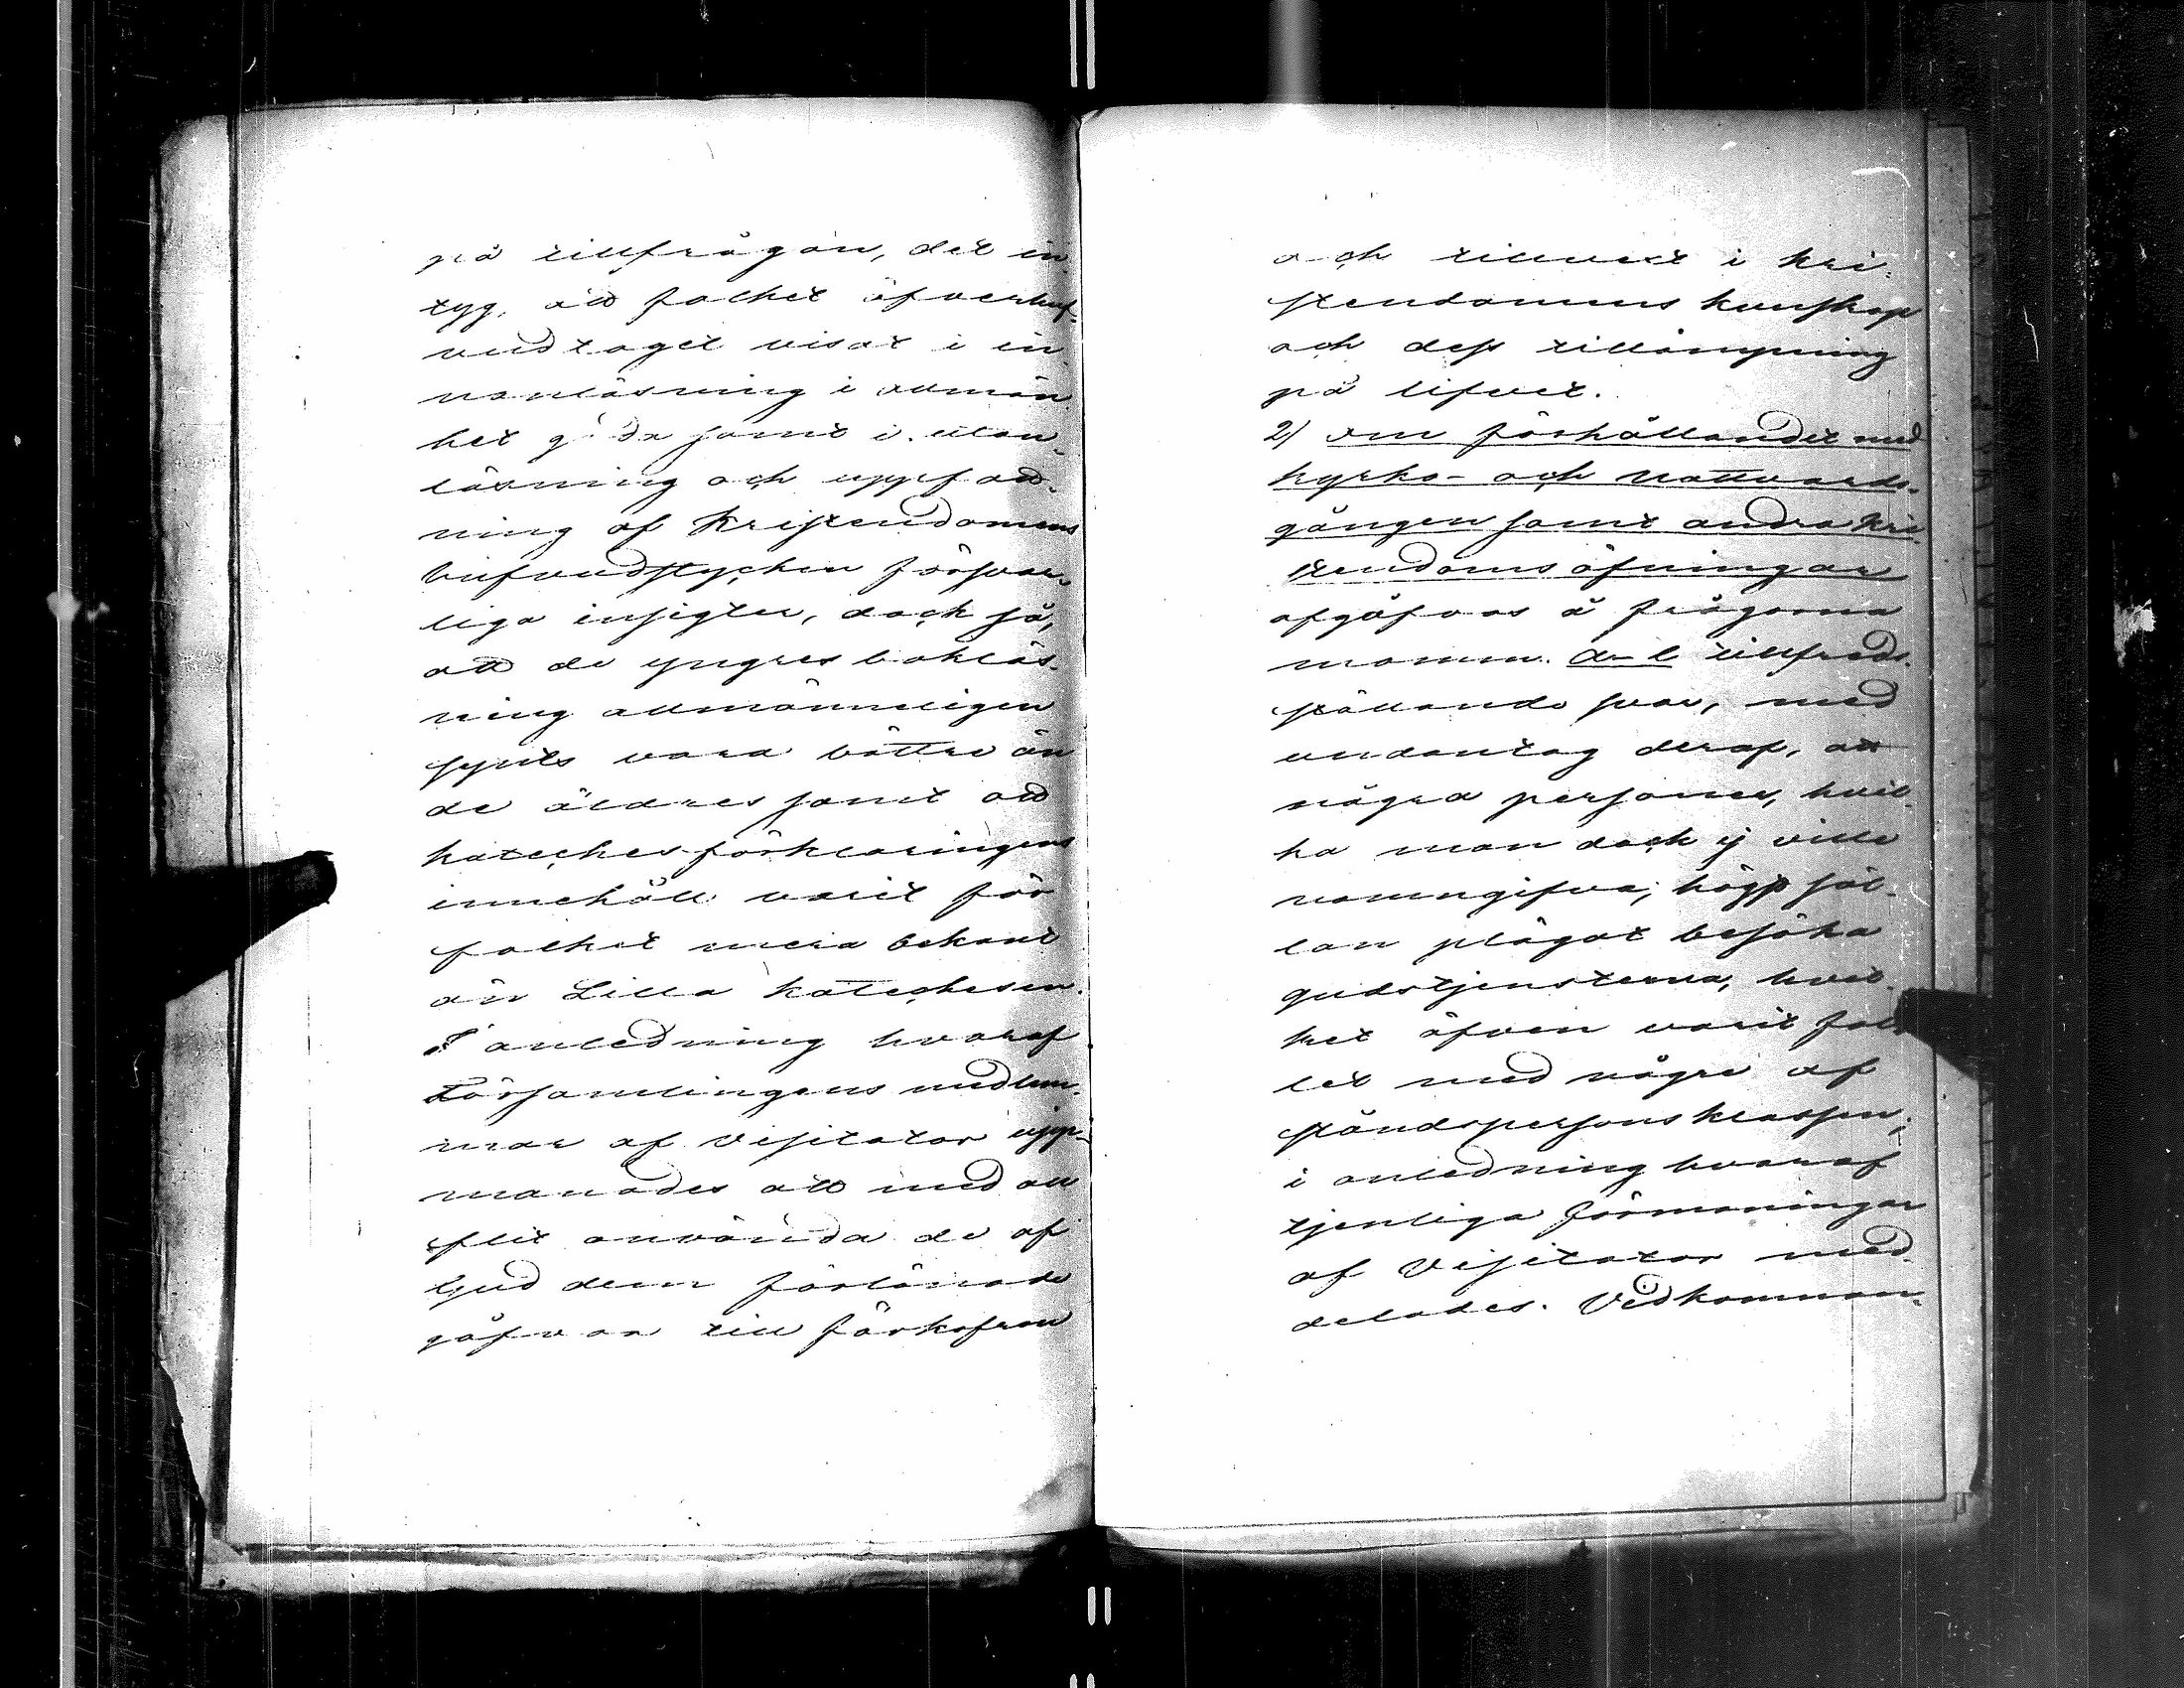 på tillfrågan, det in-
tyg, att folket öfverhuf-
vudtaget visat i in-
nanläsning i allmän-
het goda samt i utan-
läsning och uppfatt-
ning af Kristendomens
hufvudstycken försvar-
liga insigter, dock så,
att de yngres bokläs-
ning allmänneligen
synts vara bättre än
de äldres samt att
katechesförklaringens
innehåll varit för
folket mera bekant
än Lilla katechesen.
I anledning hvaraf
Församlingens medlem-
mar af Visitator upp-
manades att med all
flit använda de af
Gud dem förlänade
gåfvor till förkofran
och tillvext i kri-
stendomens kunskap
och dess tillämpning
på lifvet.
2) om förhållandet med
kyrko- och Nattvards-
gången samt andra kri-
stendomsöfningar
afgåfvos å frågorna
momm. a-l tillfreds-
ställande svar, med
undantag deraf, att
några personer, hvil-
ka man dock ej ville
namngifva, högst säl-
lan plägat besöka
gudstjensterna, hvil-
ket äfven varit fal-
let med några af
ståndspersonsklassen,
i anledning hvaraf
tjenliga förmaningar
af Visitator med-
delades. Vidkomman-